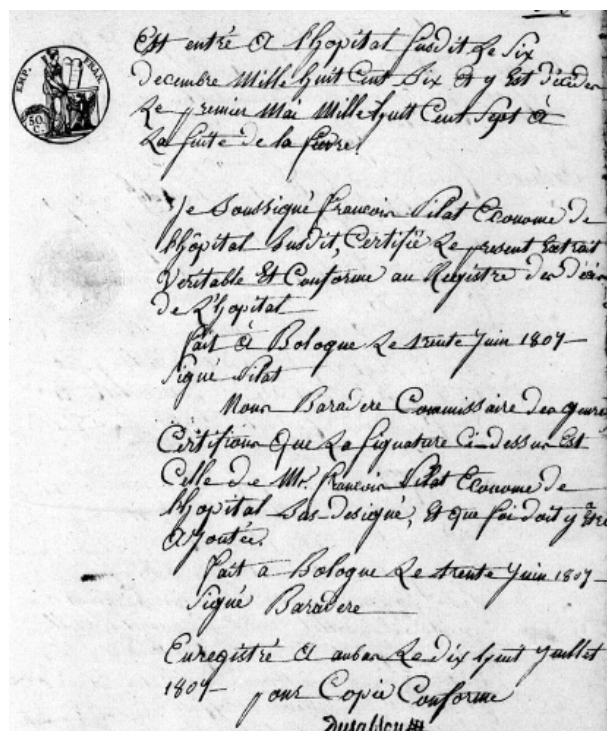 EMP. FRAN.
50. C.
Est entré a l'hopital susdit le Six
Decembre Mille huit Cent Six Et y Est décédé
Le premier Mai Mille huit Cent Sept a
La suite de la fievre.
Je Soussigné francois Pilat Econome de
l'hôpital Susdit, Certifie Le present Extrait
Veritable Et Conforme au Registre des décès
de L'hopital
fait a Bologne Le trente Juin 1807
Signé Pilat
Nous Baradere Commissaire des guerres
Certifions Que La signature Ci-dessus Est
Celle de Mr. francois Pilat Econome de
l'hopital Sus-designé, Et que foi doit y être
ajoutée.
fait a Bologne Le trente Juin 1807
Signé Baradere
Enregistré a Le dix huit Juillet
1807 pour Copie Conforme